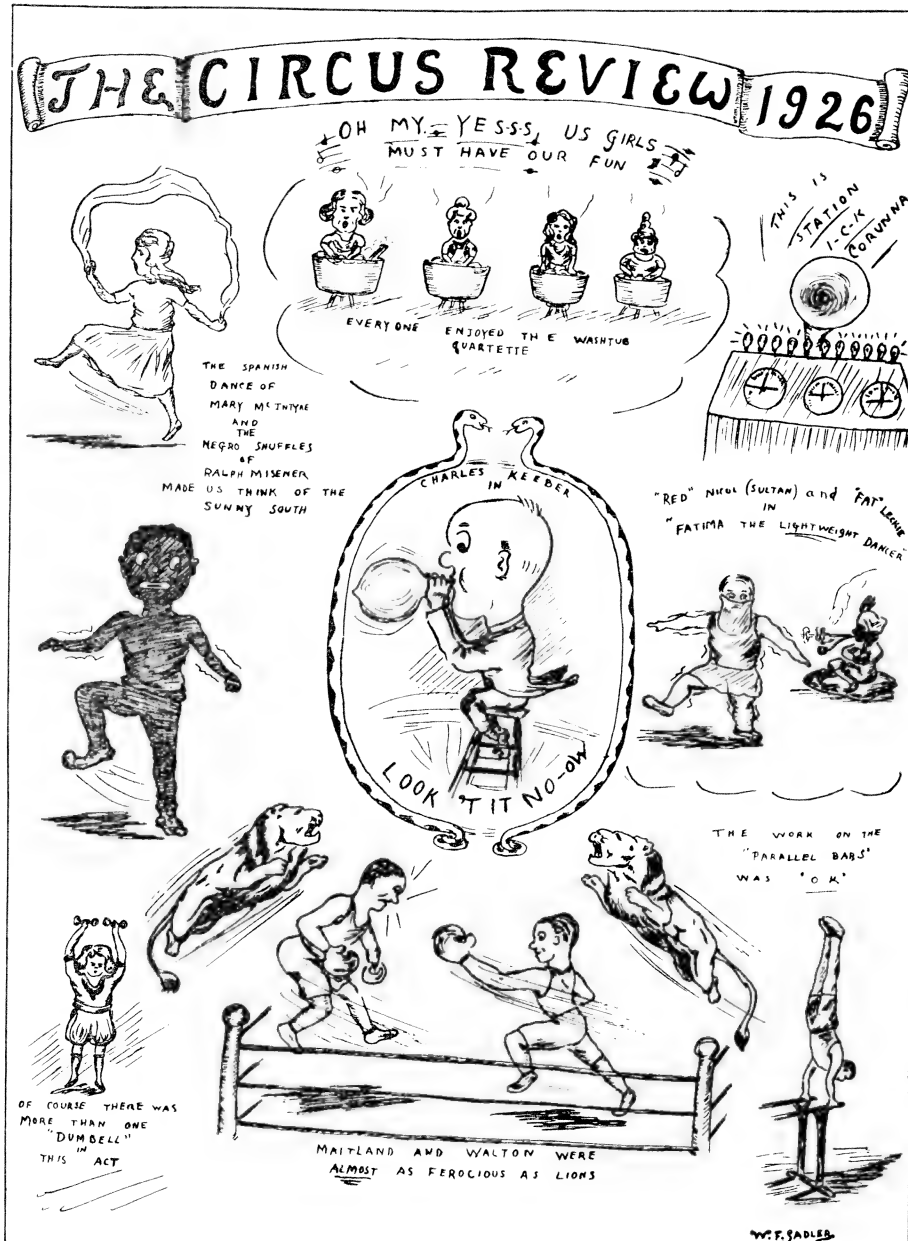 THE CIRCUS REVIEW 1926
OH MY. YES-S-S, US GIRLS
MUST HAVE OUR FUN
EVERYONE ENJOYED THE WASHTUB
QUARTETTE
THIS IS
STATION
I-C-K
CORUNNA
THE SPANISH
DANCE OF
MARY McINTYRE
AND
THE
NEGRO SHUFFLES
OF
RALPH MISENER
MADE US THINK OF THE
SUNNY SOUTH
CHARLES KEEBER
IN
LOOK 'T IT NO-OW
"RED" NICOL (SULTAN) and "FAT" LECKIE
IN
"FATIMA THE LIGHTWEIGHT DANCER"
THE WORK ON THE
"PARALLEL BARS"
WAS "OK"
OF COURSE THERE WAS
MORE THAN ONE
"DUMBELL"
IN
THIS ACT
MAITLAND AND WALTON WERE
ALMOST AS FEROCIOUS AS LIONS
W.F. SADLER